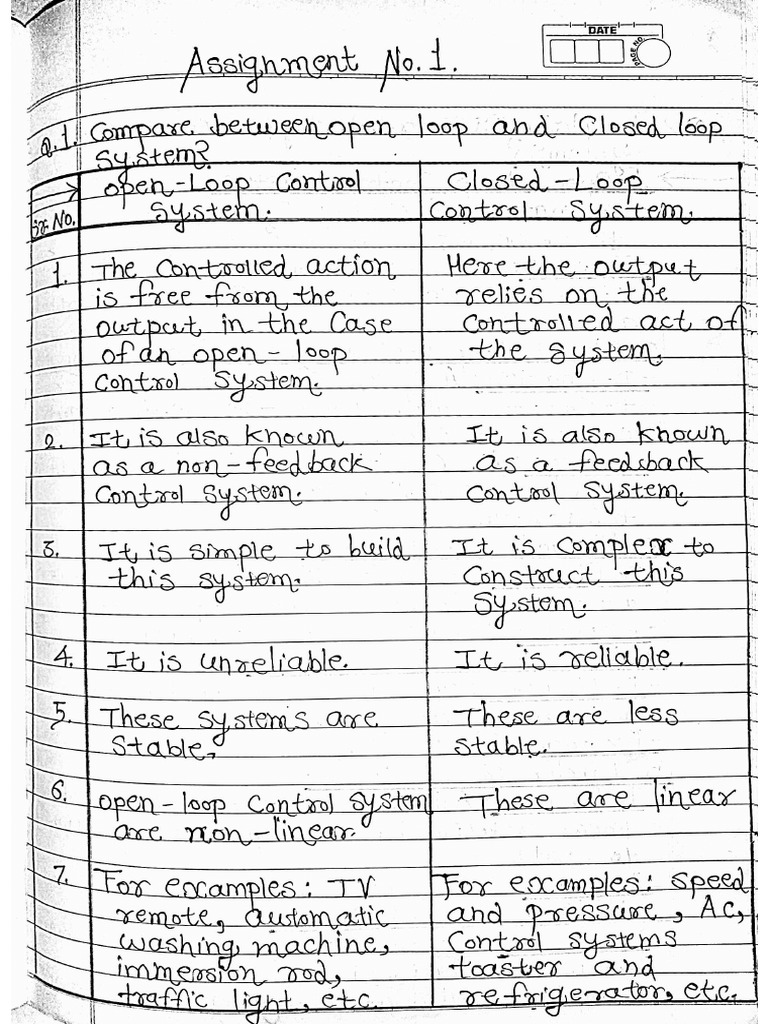 DATE
PAGE NO
Assignment No. 1.
Q.1. Compare between open loop and Closed loop
System?
Sr. No.
open-Loop Control
System.
Closed-Loop
Control System.
1. The Controlled action
is free from the
output in the Case
of an open-loop
Control System.
Here the output
relies on the
Controlled act of
the System.
2. It is also known
as a non-feedback
Control System.
It is also known
as a feedback
Control System.
3. It is simple to build
this system.
It is complex to
Construct this
System.
4. It is unreliable.
It is reliable.
5. These systems are
Stable.
These are less
stable.
6. open-loop Control System
are non-linear.
These are linear
7. For examples: TV
remote, automatic
washing machine,
immersion rod,
traffic light, etc.
For examples: speed
and pressure, AC,
Control systems
toaster and
refrigerator, etc.